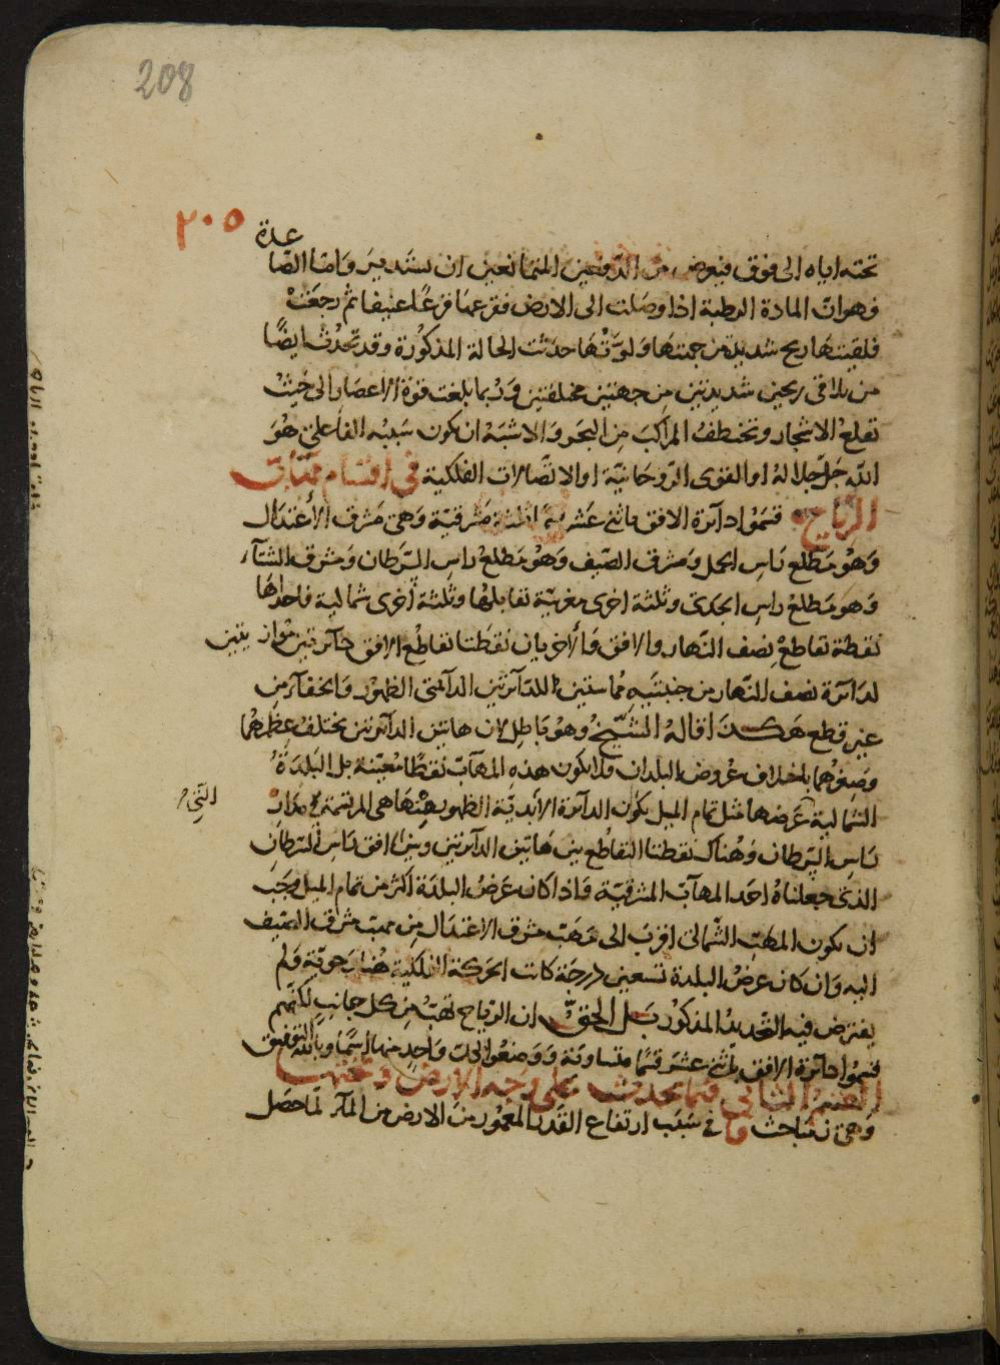 208
٢٠٥
عدة
تحته اياه الى فوق فيعرض من الدفعين المتمانعين ان يستدير واما الصا
فهو ان المادة الرطبة اذا وصلت الى الارض فقرعتها قرعًا عنيفا ثم رجعت
فلقيتها ريح شديدة من جهتها ولوتها حدثت الحالة المذكورة وقد تحدث ايضًا
من تلاقي ريحين شديدتين من جهتين مختلفتين وربما بلغت قوة الاعصار الى حيث
تقلع الاشجار وتختطف المراكب من البحر والاشبه ان يكون سببه الفاعلي هو
الله جل جلاله او القوى الروحانية او الاتصالات الفلكية في اقسام مهبات
الرياح قسموا دائرة الافق باثنى عشر ثلثة مشرقية وهي مشرق الاعتدال
وهو مطلع راس الحمل ومشرق الصيف وهو مطلع راس السرطان ومشرق الشتآء
وهو مطلع راس الجدى وثلثة اخرى مغربية تقابلها وثلثة أخرى شمالية فاحداها
نقطة تقاطع نصف النهار والافق والأخريان نقطتا تقاطع الافق دائرتين متوازيتين
لدائرة نصف النهار من جنبتيه مماستين للدائرتين الدائمتى الظهور والخفآء من
غير قطع هكذا قاله الشيخ وهو باطل لان هاتين الدائرتين يختلف عظمهما
وصغرهما باختلاف عروض البلدان فلا يكون هذه المهابّ نقطا معينة بل البلدة
الشمالية عرضها مثل تمام الميل يكون الدائرة الابدية الظهور هى المرتسمة مدار
التي
راس السرطان وهناك نقطتا التقاطع بين هاتين الدائرتين وبين افق راس السرطان
الذى جعلناه احد المهابّ المشرقية فاذا كان عرض البلدة اكثر من تمام الميل وجب
ان يكون المهب الشمالى اقرب الى مهب مشرق الاعتدال من مهب مشرق الصيف
اليه وان كان عرض البلدة تسعين درجة كانت الحركة الفلكية هناك رحوية فلم
يفترض فيه التحديد المذكور بل الحق ان الرياح تهب من كل جانب لكنهم
قسموا دائرة الافق باثنى عشر قسمًا متساوية ووضعوا لكل واحد منها اسمًا وبالله التوفيق
القسم الثانى فيما يحدث على وجه الارض وتحتها
وهي مباحث في سبب ارتفاع القدر المعمور من الارض من المآء لما حصل